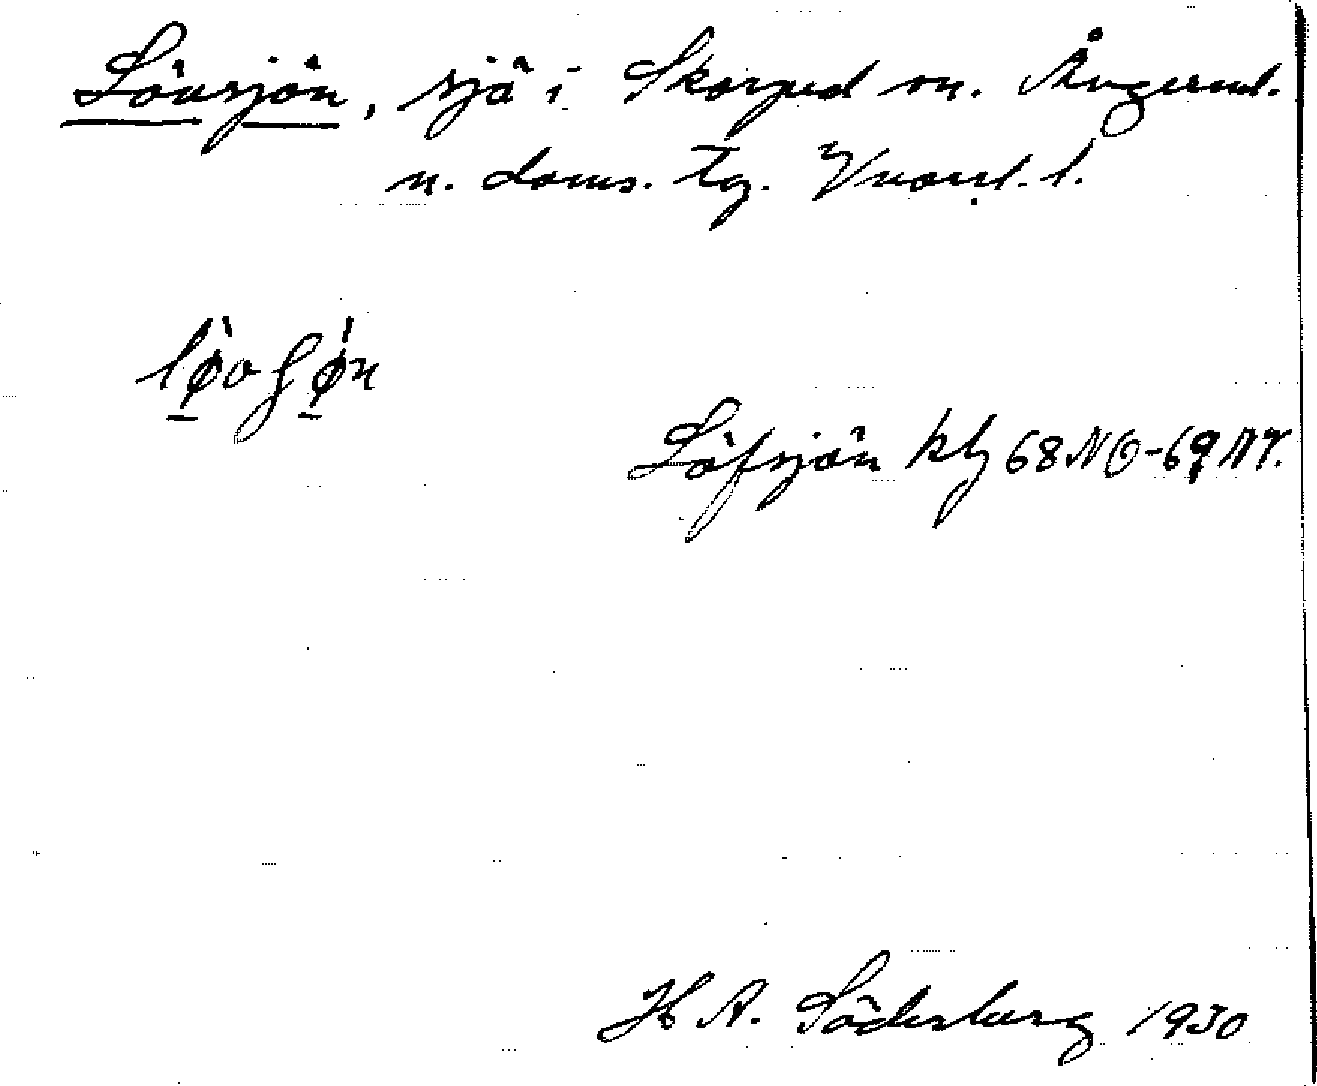 Lövsjön, sjö i Skorped sn. Ångerml.
n. doms. tg. Vnorrl. l.
lø̀vʃø̀n
Löfsjön kbl 68 NO-69 NV.
H A. Söderberg 1930